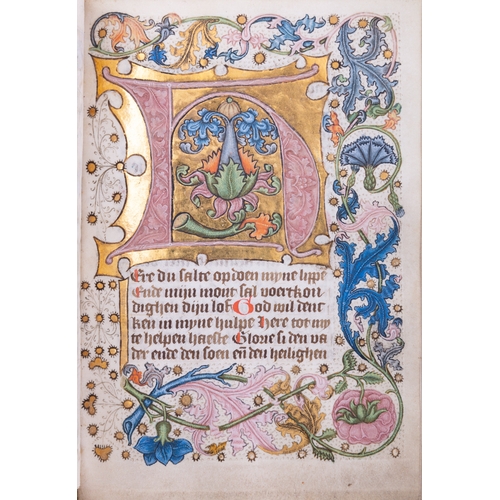 HEre du salte opdoen myne lippe
Ende mijn mont sal voertkon
dighen dijn lof God wil denc
ken in myne hulpe Here tot my
te helpen haeste Glorie si den va
der ende den soen eñ den heilighen